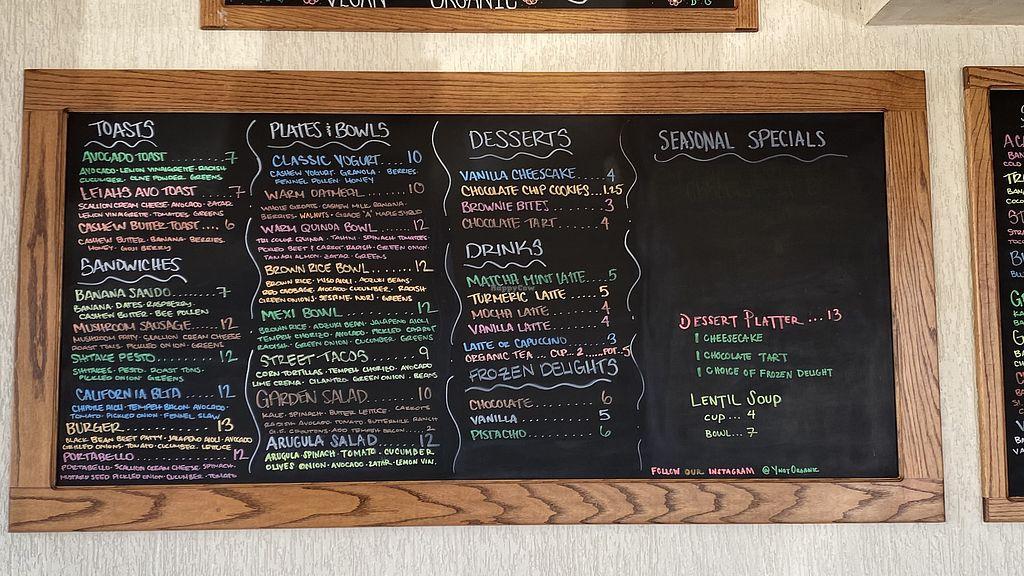 VEGAN ORGANIC
TOASTS
AVOCADO TOAST ........ 7
AVOCADO · LEMON VINAIGRETTE · RADISH
CUCUMBER · OLIVE POWDER · GREENS
LEIAHS AVO TOAST ..... 7
SCALLION CREAM CHEESE · AVOCADO · ZATAR
LEMON VINAIGRETTE · TOMATOES · GREENS
CASHEW BUTTER TOAST .... 6
CASHEW BUTTER · BANANA · BERRIES
HONEY · GOJI BERRY
SANDWICHES
BANANA SANDO ........ 7
BANANA · DATES · RASPBERRY
CASHEW BUTTER · BEE POLLEN
MUSHROOM SAUSAGE ..... 12
MUSHROOM PATTY · SCALLION CREAM CHEESE
ROAST TOMS · PICKLED ONION · GREENS
SHITAKE PESTO ........ 12
SHITAKES · PESTO · ROAST TOMS ·
PICKLED ONION GREENS
CALIFORNIA BLTA ...... 12
CHIPOTLE AIOLI · TEMPEH BACON · AVOCADO ·
TOMATO · PICKLED ONION · FENNEL SLAW
BURGER ............ 13
BLACK BEAN BEET PATTY · JALAPENO AIOLI · AVOCADO
GRILLED ONIONS · TOMATO · CUCUMBER · LETTUCE
PORTABELLO ......... 12
PORTABELLO · SCALLION CREAM CHEESE SPINACH ·
MUSTARD SEED PICKLED ONION · CUCUMBER · TOMATO
PLATES & BOWLS
CLASSIC YOGURT .... 10
CASHEW YOGURT · GRANOLA · BERRIES
FENNEL POLLEN · HONEY
WARM OATMEAL ....... 10
WHOLE GROATS · CASHEW MILK BANANA ·
BERRIES · WALNUTS · GRADE "A" MAPLE SYRUP
WARM QUINOA BOWL ... 12
TRI COLOR QUINOA · TAHINI · SPINACH TOMATOES ·
PICKLED BEET & CARROT RADISH · GREEN ONION ·
TAMARI ALMON · ZATAR · GREENS
BROWN RICE BOWL ..... 12
BROWN RICE · MISO AIOLI · ADZUKI BEANS
RED CABBAGE · AVOCADO · CUCUMBER · RADISH
GREEN ONIONS · SESAME NORI · GREENS
MEXI BOWL ......... 12
BROWN RICE · ADZUKI BEAN · JALAPENO AIOLI
TEMPEH CHORIZO · AVOCADO · PICKLED CARROT
RADISH · GREEN ONION · CUCUMBER GREENS
STREET TACOS 9
CORN TORTILLAS · TEMPEH CHORIZO · AVOCADO
LIME CREMA · CILANTRO GREEN ONION · BEANS
GARDEN SALAD ....... 10
KALE · SPINACH · BUTTER LETTUCE · CARROTS
RADISH AVOCADO TOMATO BUTTERMILK RANCH
ADD TEMPEH BACON ... 2
ARUGULA SALAD ..... 12
ARUGULA · SPINACH · TOMATO · CUCUMBER
OLIVES ONION · AVOCADO · ZATAR · LEMON VIN.
DESSERTS
VANILLA CHEESCAKE ..... 4
CHOCOLATE CHIP COOKIES .. 1.25
BROWNIE BITES ........ 3
CHOCOLATE TART ...... 4
DRINKS
MATCHA MINT LATTE ... 5
TURMERIC LATTE .... 5
MOCHA LATTE ....... 4
VANILLA LATTE ...... 4
LATTE OR CAPUCCINO .... 3
ORGANIC TEA ... CUP .. 2 ..... POT . 5
FROZEN DELIGHTS
CHOCOLATE ......... 6
VANILLA ........... 5
PISTACHO .......... 6
SEASONAL SPECIALS
DESSERT PLATTER ... 13
1 CHEESECAKE
1 CHOCOLATE TART
1 CHOICE OF FROZEN DELIGHT
LENTIL SOUP
CUP ... 4
BOWL ... 7
FOLLOW OUR INSTAGRAM @YNOTORGANIC
HappyCow